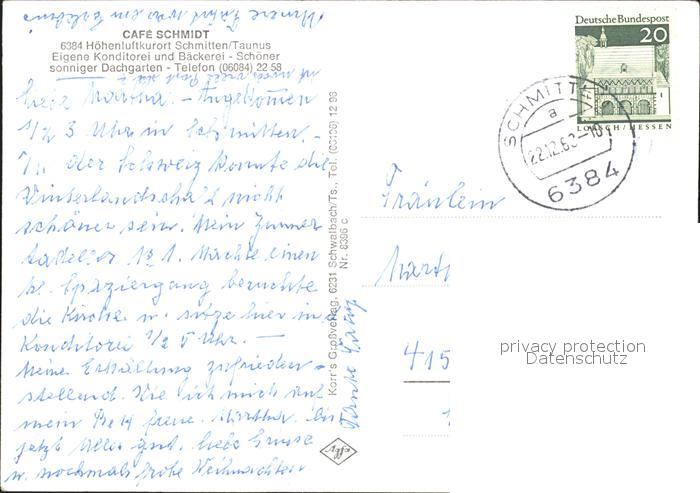 CAFÉ SCHMIDT
6384 Höhenluftkurort Schmitten/Taunus
Eigene Konditorei und Bäckerei - Schöner
sonniger Dachgarten - Telefon (06084) 22 58
Liebe Martha. - Angekommen
1/2 3 Uhr in Schmitten.
In der Schweiz konnte die
Winterlandschaft nicht
schöner sein. Mein Zimmer
tadellos 1a. Machte einen
kl. Spaziergang besuchte
die Kirche u. sitze hier in
Konditorei 1/2 5 Uhr. -
Meine Erkältung zufrieden-
stellend. Wie ich mich auf
mein Bett freue. Martha. Bis
jetzt alles gut. Liebe Grüsse
u. nochmals frohe Weihnachten
Tante
Korr's Großverlag, 6231 Schwalbach/Ts., Tel. (06196) 12 96
Nr. 8396 c
Agfa
Deutsche Bundespost
20
LORSCH/HESSEN
SCHMITTEN
a
22.12.68-10
6384
Fräulein
Marth
415
privacy protection
Datenschutz